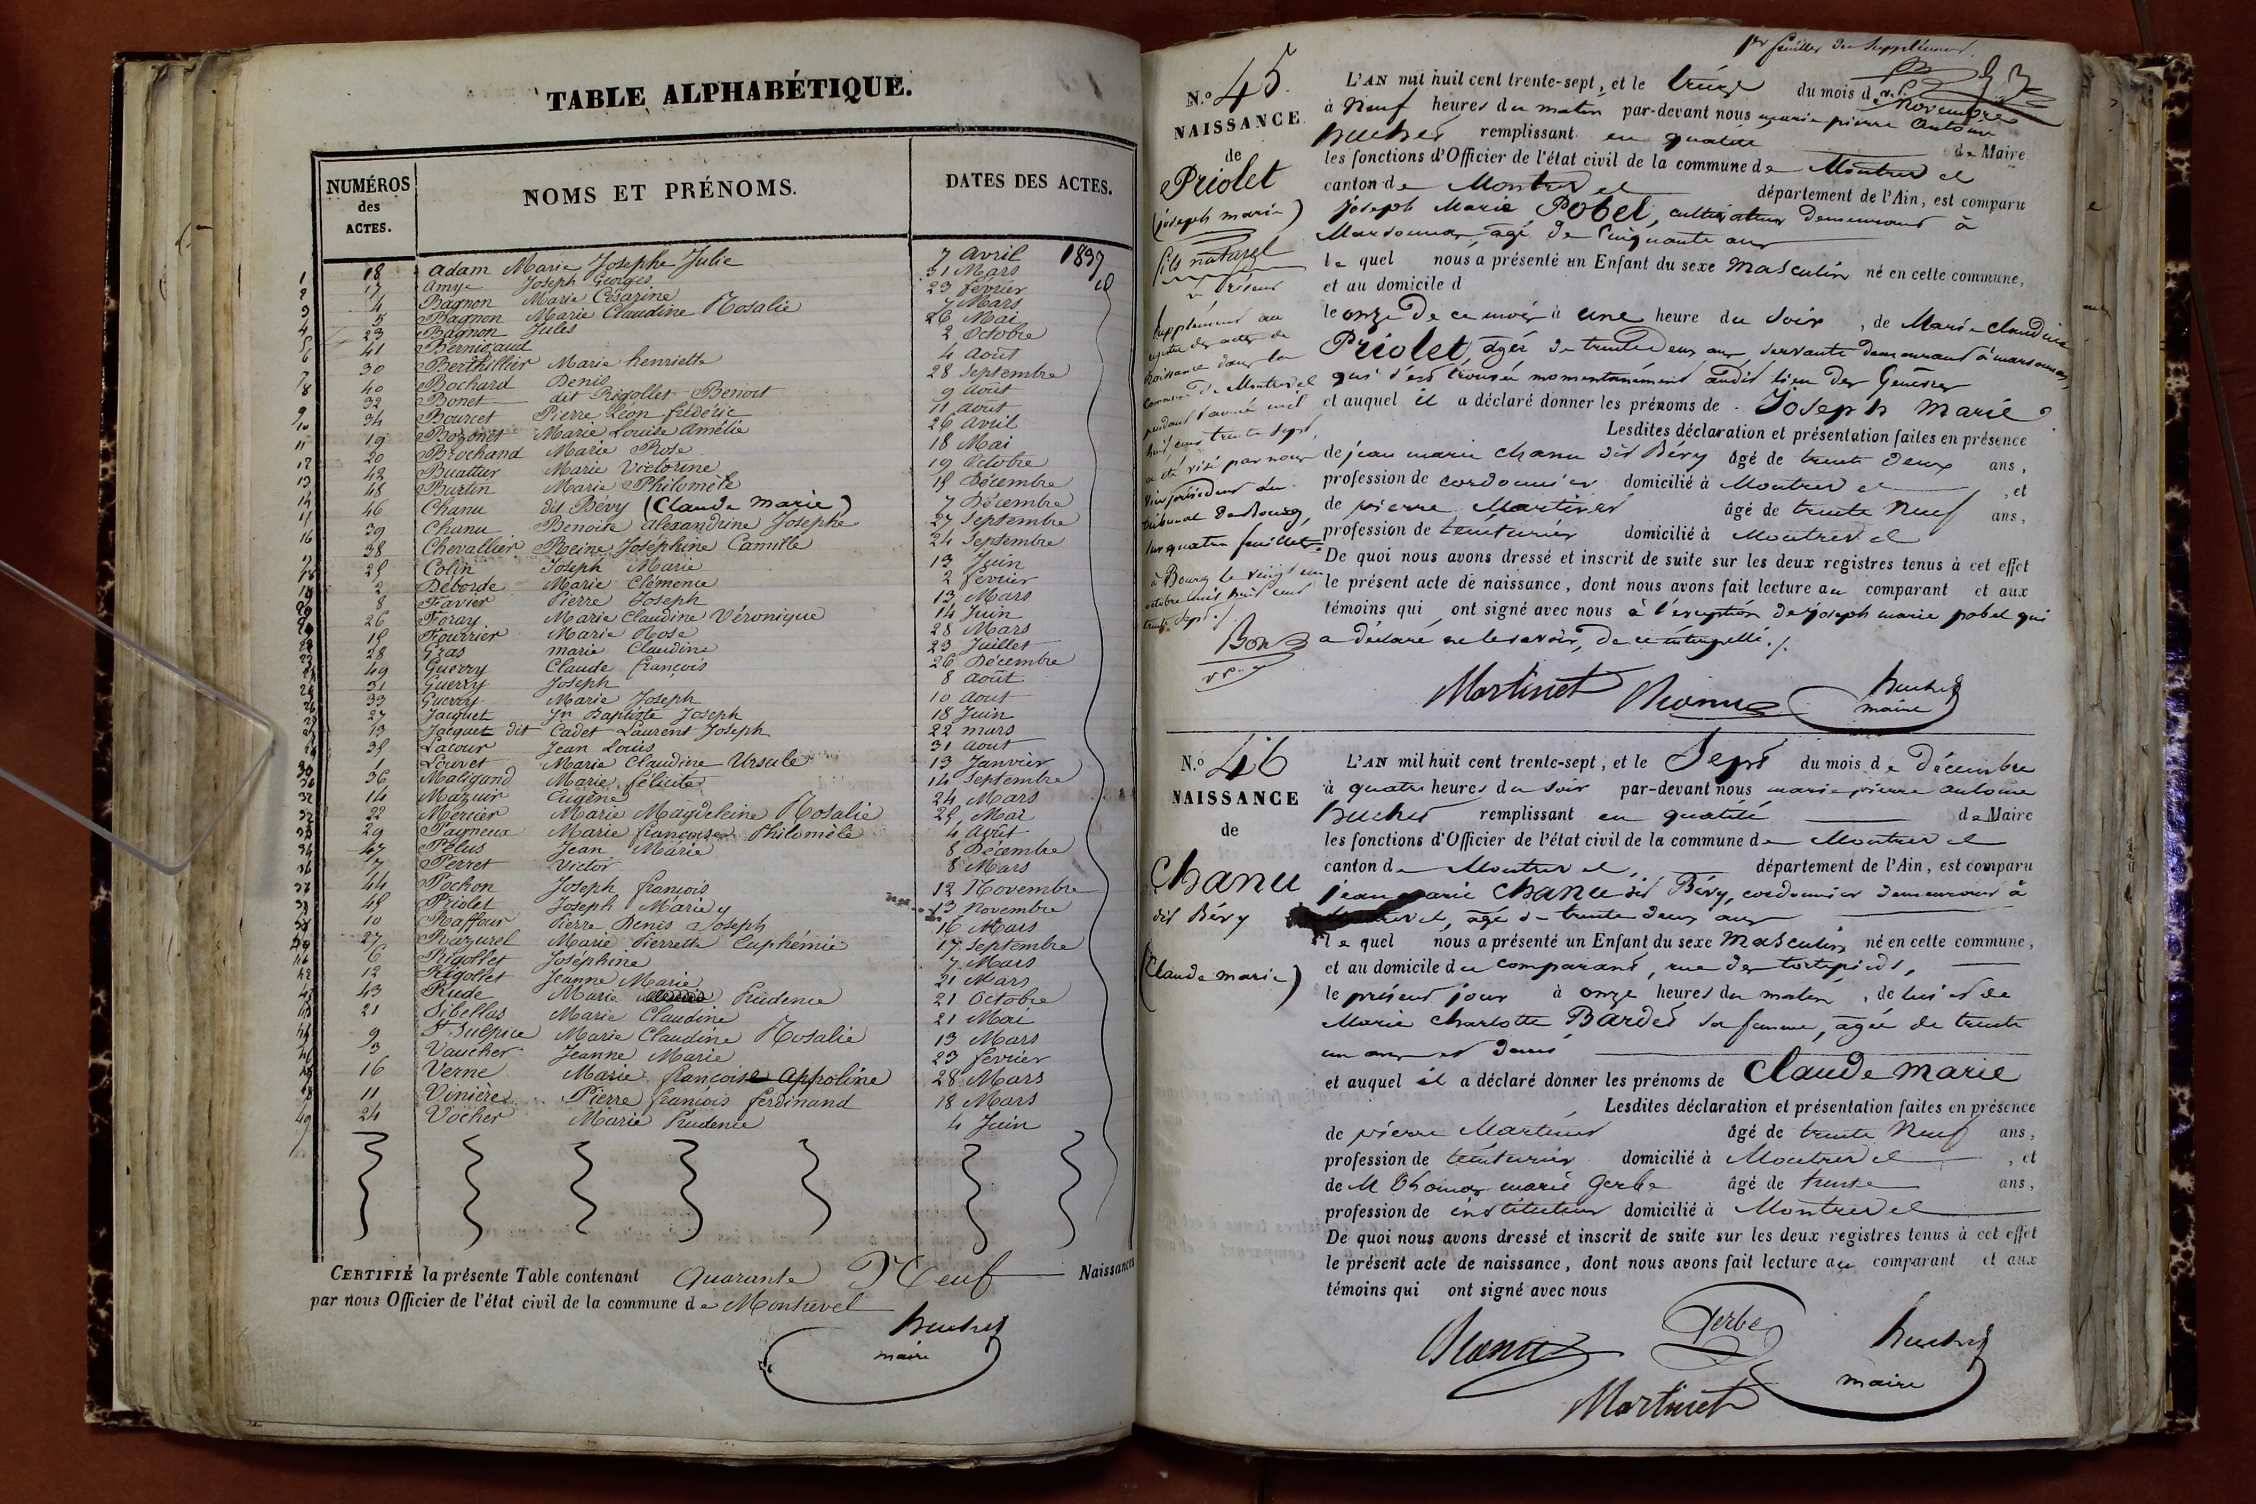 TABLE ALPHABÉTIQUE.
NUMÉROS des ACTES.
NOMS ET PRÉNOMS.
DATES DES ACTES.
18 Adam Marie Josephe Julie 7 Avril 1837
17 Amye Joseph Georges 31 Mars
4 Bagnon Marie Césarine 23 février
5 Bagnon Marie Claudine Rosalie 7 Mars
23 Bagnon Jules 26 Mai
41 Bernigaud 2 Octobre
30 Berthillier Marie henriette 4 Août
40 Bochard Denis 28 Septembre
32 Bonet dit Rigollet Benoit 9 août
34 Bourcet Pierre Léon frédéric 11 aout
19 Bozonet Marie Louise Amélie 26 avril
20 Brochand Marie Rose 18 Mai
42 Buattier Marie Victorine 19 Octobre
48 Burtin Marie Philomèle 18 Décembre
46 Chanu dit Bévy (Claude marie) 7 Décembre
39 Chanu Benoite alexandrine Josephe 27 Septembre
38 Chevallier Reine Joséphine Camille 24 Septembre
25 Colin Joseph Marie 13 Juin
2 Deborde Marie Clémence 2 février
8 Favier Pierre Joseph 13 Mars
26 Foray Marie Claudine Véronique 14 Juin
15 Fourrier Marie Rose 28 Mars
28 Gras marie Claudine 23 Juillet
49 Guerry Claude françois 26 Décembre
31 Guerry Joseph 8 août
33 Guerry Marie Joseph 10 aout
27 Jacquet Jn Baptiste Joseph 18 Juin
13 Jacquet dit Cadet Laurent Joseph 22 mars
35 Lacour Jean Louis 31 aout
1 Louvet Marie Claudine Ursule 13 Janvier
36 Maligand Marie félicité 14 Septembre
14 Mazuir Eugène 24 Mars
22 Mercier Marie Magdeleine Rosalie 25 Mai
29 Pagneux Marie françoise Philomèle 4 août
47 Pélus Jean Marie 8 Décembre
7 Perret Victor 8 Mars
44 Pochon Joseph françois 12 Novembre
45 Priolet Joseph Marie 13 novembre
10 Raffour Pierre Denis Joseph 16 Mars
37 Razurel Marie Pierrette Euphémie 17 Septembre
6 Rigollet Joséphine 7 Mars
12 Rigollet Jeanne Marie 21 Mars
43 Rude Marie Prudence 21 Octobre
21 Sibellas Marie Claudine 21 Mai
9 St Sulpice Marie Claudine Rosalie 13 Mars
3 Vaucher Jeanne Marie 23 février
16 Verne Marie françoise Appoline 28 Mars
11 Vinière Pierre françois ferdinand 18 Mars
24 Vocher Marie Prudence 4 Juin
CERTIFIÉ la présente Table contenant Quarante Neuf Naissances
par nous Officier de l'état civil de la commune de Montrevel
huchet
maire
1er feuillet du Supplément
N.º 45
NAISSANCE
de
Priolet
(joseph marie)
fils naturel
Supplément au
registre des actes de
naissance dans la
commune de Montrevel
pendant l'année mil
huit cent trente sept,
a été visé par nous
Vice président du
tribunal de Bourg,
sur quatre feuillets
à Bourg le vingt un
octobre mil huit cent
trente sept ./.
Bon
L'AN mil huit cent trente-sept, et le treize du mois de novembre
à Neuf heures du matin par-devant nous marie pierre antoine
huchet remplissant en qualité de Maire
les fonctions d'Officier de l'état civil de la commune de Montrevel
canton de Montrevel département de l'Ain, est comparu
joseph Marie Pobel, cultivateur demeurant à
Marsonnas, agé de Cinquante ans
lequel nous a présenté un Enfant du sexe masculin né en cette commune,
et au domicile d
le onze de ce mois à une heure du soir, de Marie claudine
Priolet, agée de trente deux ans, servante demeurant à marsonnas,
qui s'est trouvée momentanément audit lieu des
et auquel il a déclaré donner les prénoms de Joseph Marie
Lesdites déclaration et présentation faites en présence
de jean marie chanu dit Bévy âgé de trente deux ans,
profession de cordonnier domicilié à Montrevel, et
de pierre Martinet âgé de trente Neuf ans,
profession de teinturier domicilié à Montrevel
De quoi nous avons dressé et inscrit de suite sur les deux registres tenus à cet effet
le présent acte de naissance, dont nous avons fait lecture au comparant et aux
témoins qui ont signé avec nous à l'exception de joseph marie pobel qui
a déclaré ne le savoir, de ce interpellé ./.
Martinet Chanu huchet
maire
N.º 46
NAISSANCE
de
Chanu
dit Bévy
(Claude marie)
L'AN mil huit cent trente-sept, et le Sept du mois de décembre
à quatre heures du soir par-devant nous marie pierre antoine
huchet remplissant en qualité de Maire
les fonctions d'Officier de l'état civil de la commune de Montrevel
canton de Montrevel, département de l'Ain, est comparu
jean marie chanu dit Bévy, cordonnier demeurant à
Montrevel, agé de trente deux ans
lequel nous a présenté un Enfant du sexe Masculin né en cette commune,
et au domicile du comparant, rue des
le présent jour à onze heures du matin, de lui et de
Marie charlotte Bardet sa femme, agée de trente
un ans et demi
et auquel il a déclaré donner les prénoms de Claude marie
Lesdites déclaration et présentation faites en présence
de pierre Martinet âgé de trente Neuf ans,
profession de teinturier domicilié à Montrevel, et
de M Thomas marie Gerbe âgé de trente ans,
profession de instituteur domicilié à Montrevel
De quoi nous avons dressé et inscrit de suite sur les deux registres tenus à cet effet
le présent acte de naissance, dont nous avons fait lecture au comparant et aux
témoins qui ont signé avec nous
Chanu Gerbe huchet
maire
Martinet